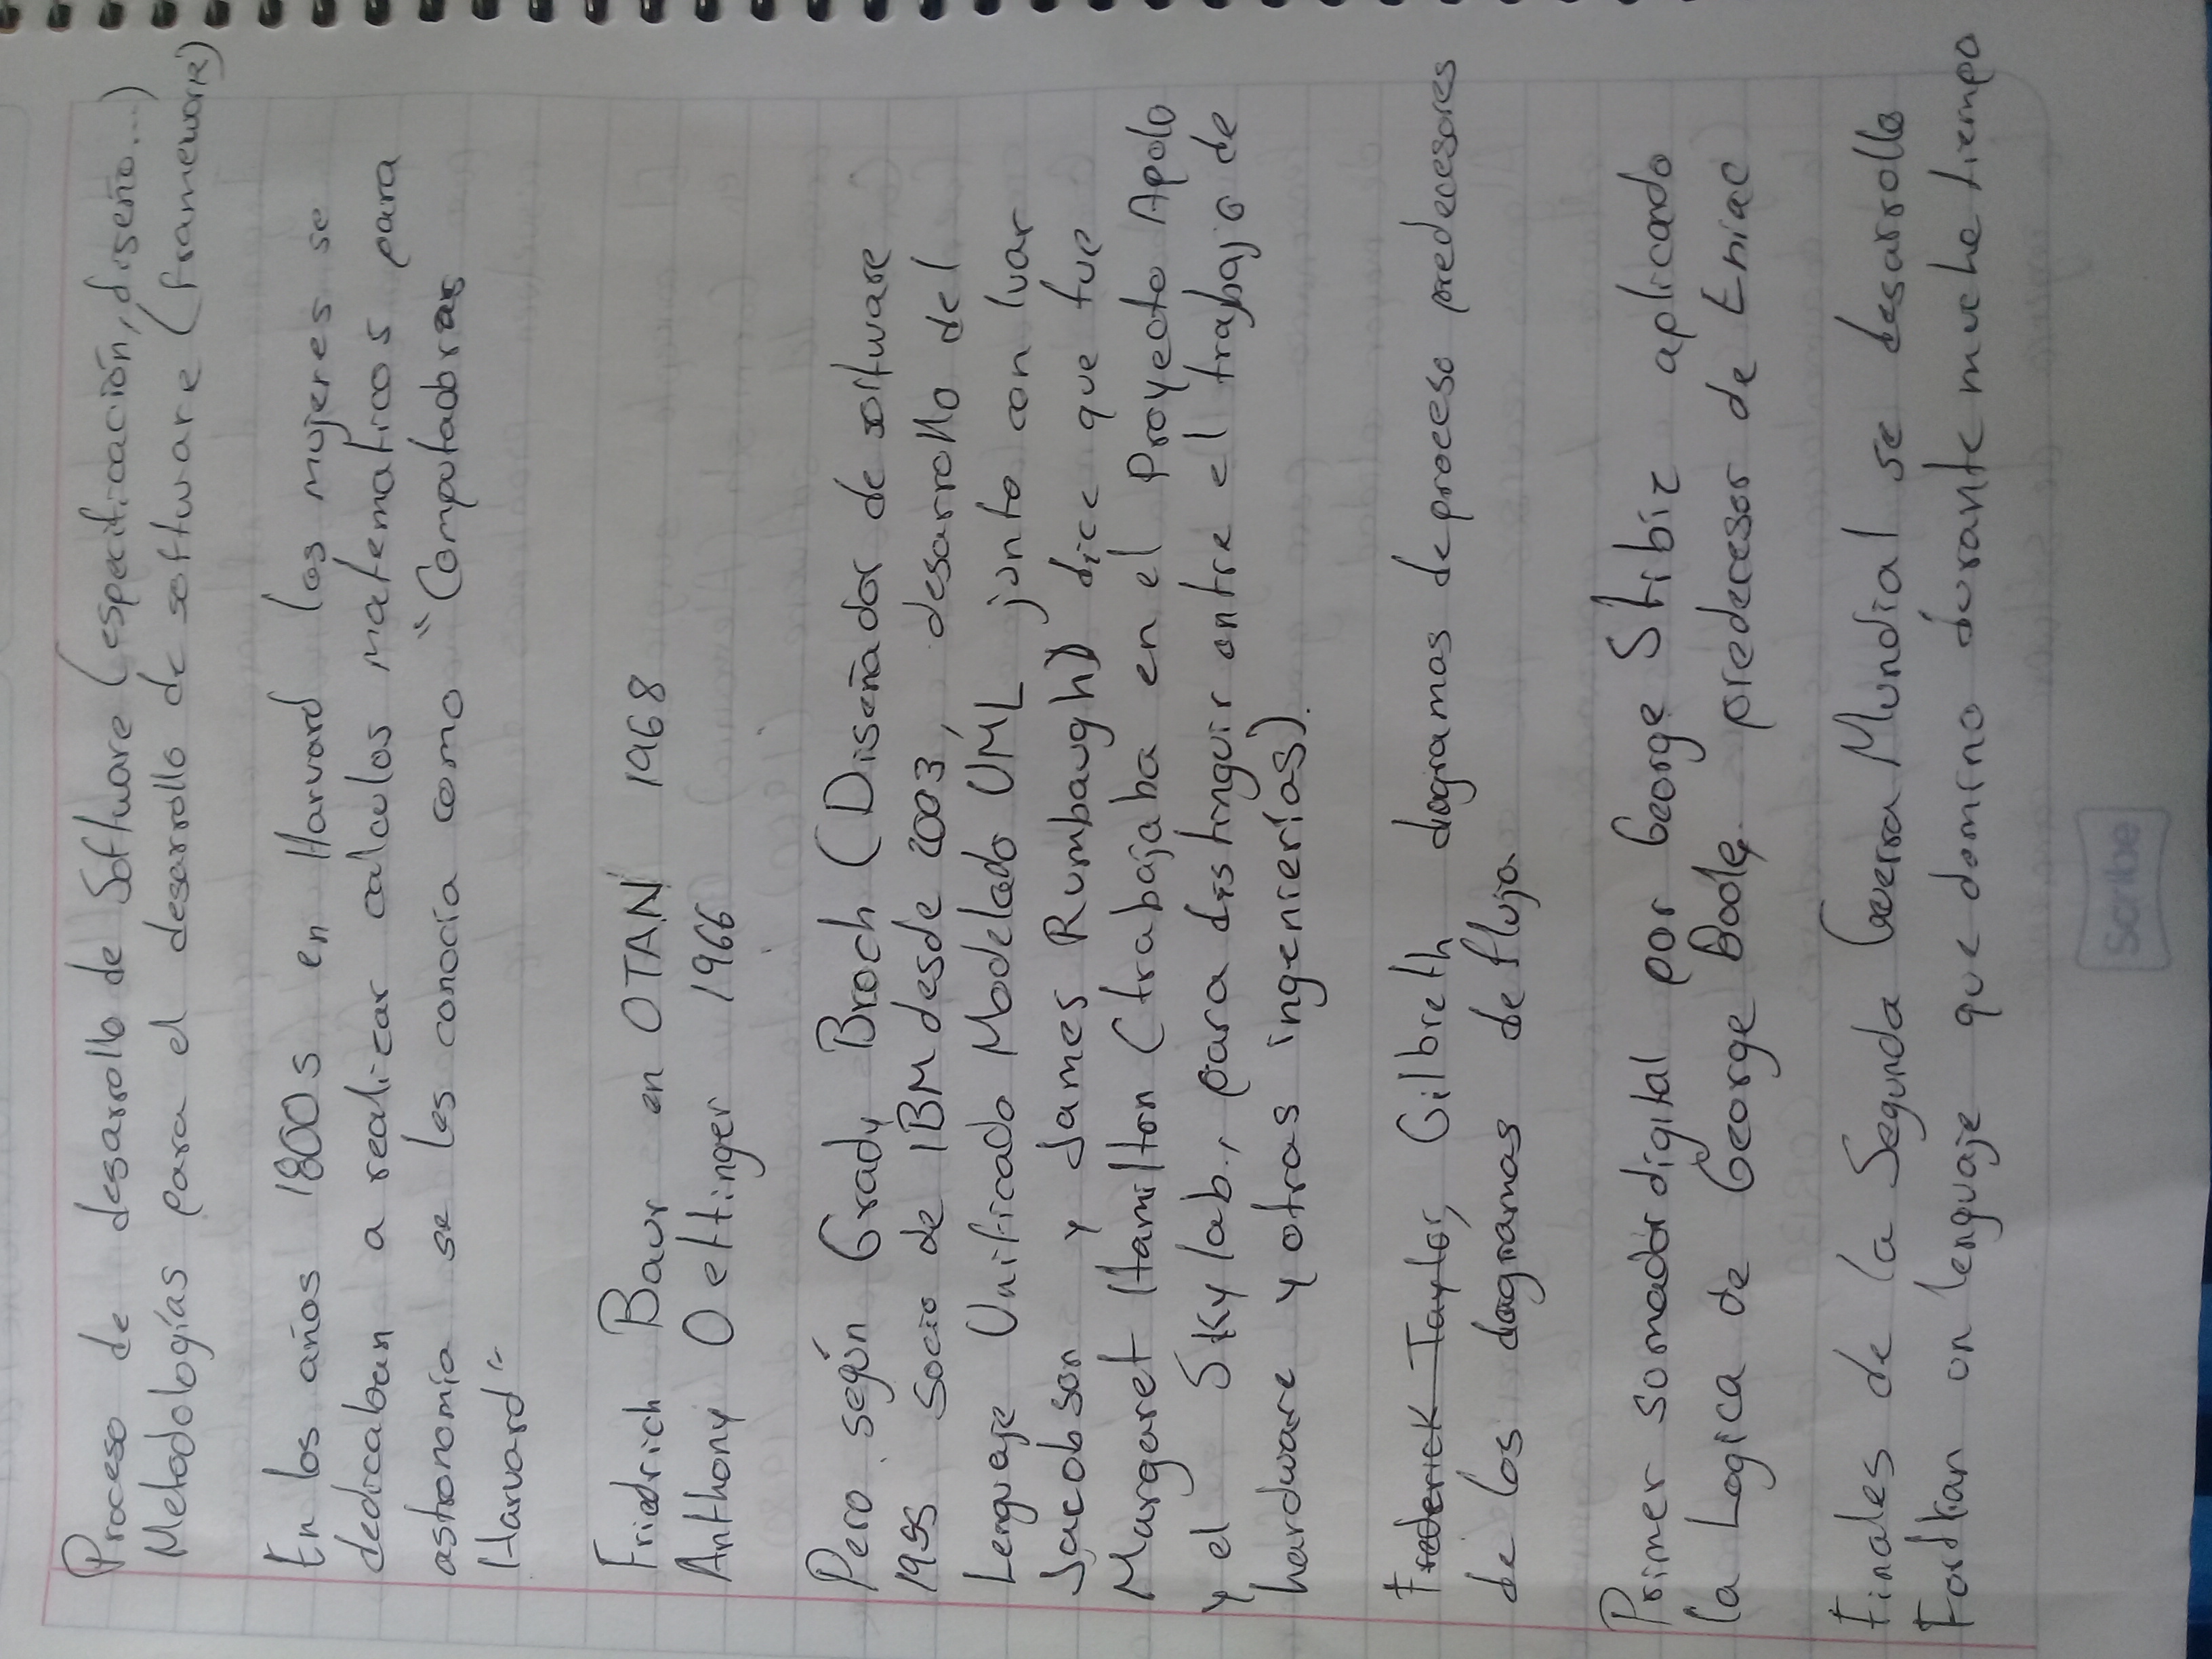 Proceso de desarrollo de Software (especificación, diseño...)
Metodologías para el desarrollo de software (framework)
En los años 1800s en Harvard las mujeres se
dedicaban a realizar calculos matematicos para
astronomía se les conocía como "Computadoras
Harvard"
Friedrich Baur en OTAN 1968
Anthony Oettinger 1966
Pero según Grady Broch (Diseñador de software
1955 socio de IBM desde 2003, desarrollo del
Lenguaje Unificado Modelado UML junto con Ivar
Jacobson y James Rumbaugh) dice que fue
Margaret Hamilton (trabajaba en el Proyecto Apolo
y el Skylab., para distinguir entre el trabajo de
hardware y otras ingenierías).
Frederick Taylor, Gilbreth diagramas de proceso predecesores
de los diagramas de flujo
Primer sumador digital por George Stibiz aplicando
la Logica de George Boole predecesor de Eniac
Finales de la Segunda Guerra Mundial se desarrollo
Fordtran un lenguaje que domino durante mucho tiempo
Scribe